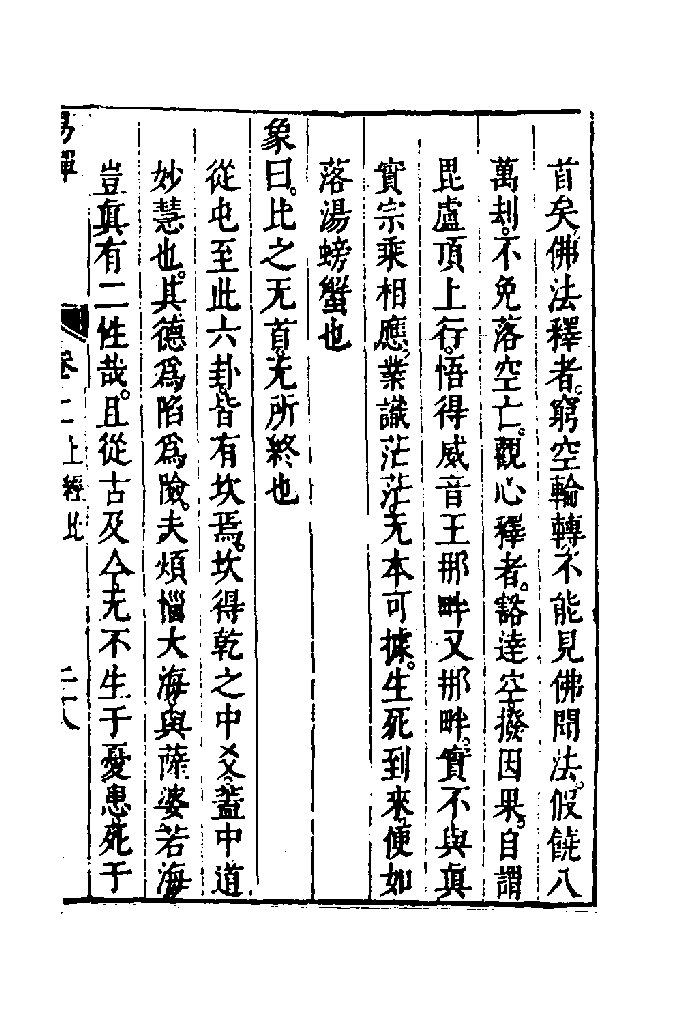 首矣佛法釋者。窮空輪轉。不能見佛聞法。假饒八
萬劫。不免落空亡。觀心釋者。豁達空。撥因果。自謂
毘盧頂上行。悟得威音王那畔又那畔。實不與真
實宗乘相應。業識茫茫。无本可據。生死到來。便如
落湯螃蟹也
象曰。比之无首。无所終也
從屯至此六卦。皆有坎焉。坎得乾之中爻。蓋中道
妙慧也。其德為陷為險。夫煩惱大海。與薩婆若海。
豈真有二性哉。且從古及今。无不生于憂患。死于
易禪 卷二 上經比 二八